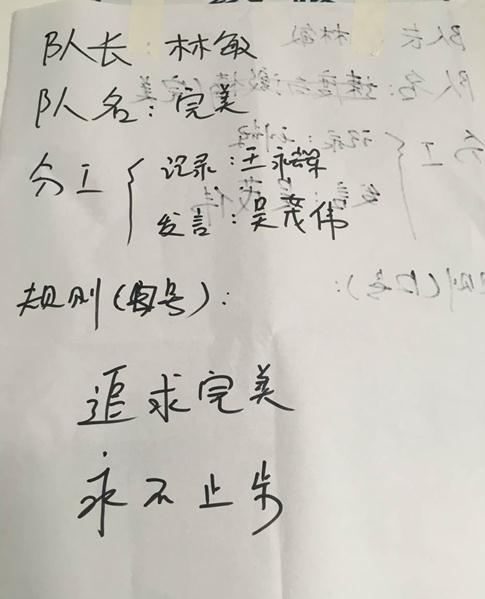 队长：林敏
队名：完美
分工{记录：王永辉
发言：吴茂伟
规则(口号)：
追求完美
永不止步